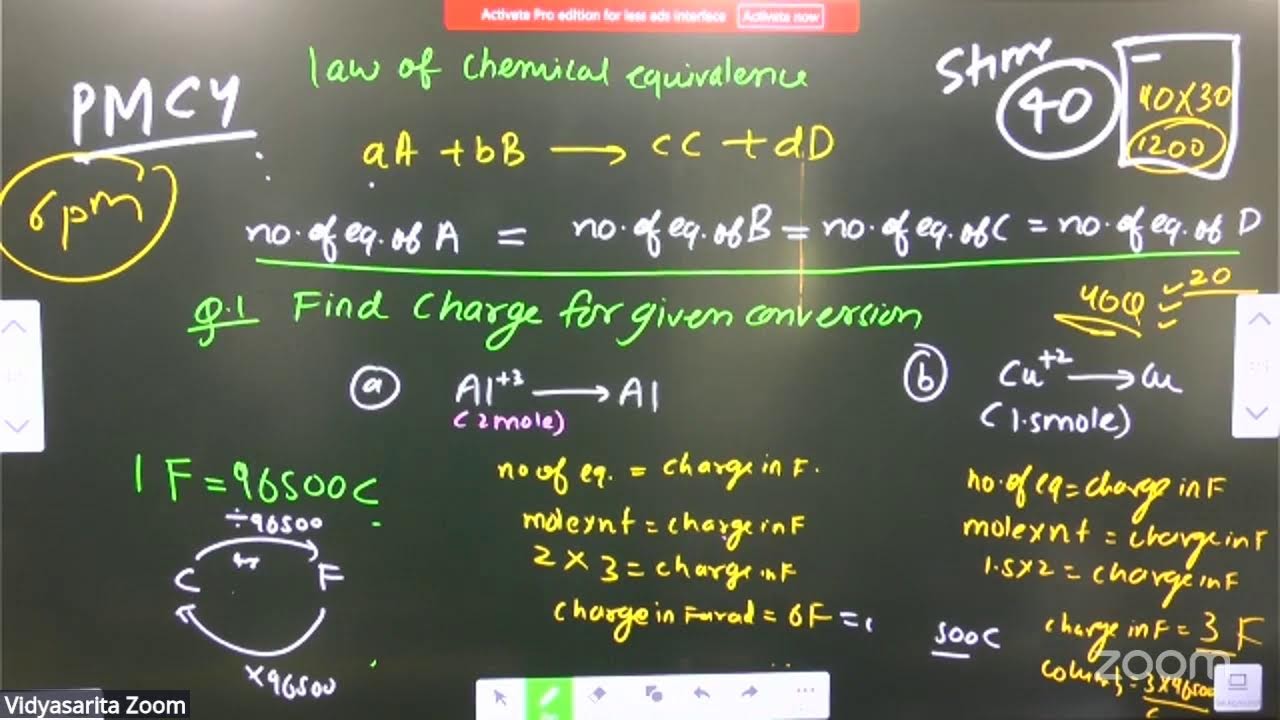 Activate Pro edition for less ads interface Activate now
law of chemical equivalence
PMCY
40
40X30
1200
aA + bB → cC + dD
6 pm
no. of eq. of A = no. of eq. of B = no. of eq. of C = no. of eq. of D
Q.1 Find Charge for given conversion
40Q
20
(a) Al+3 → Al
(2 mole)
(b) Cu+2 → Cu
(1.5 mole)
1 F = 96500 C
÷ 96500
C F
× 96500
no of eq. = charge in F.
mole x nf = charge in F
2 X 3 = charge in F
charge in Farad = 6F =
500 C
no. of eq = charge in F
mole x nf = charge in F
1.5 x 2 = charge in F
charge in F = 3 F
= 3 x 96500
zoom
Vidyasarita Zoom